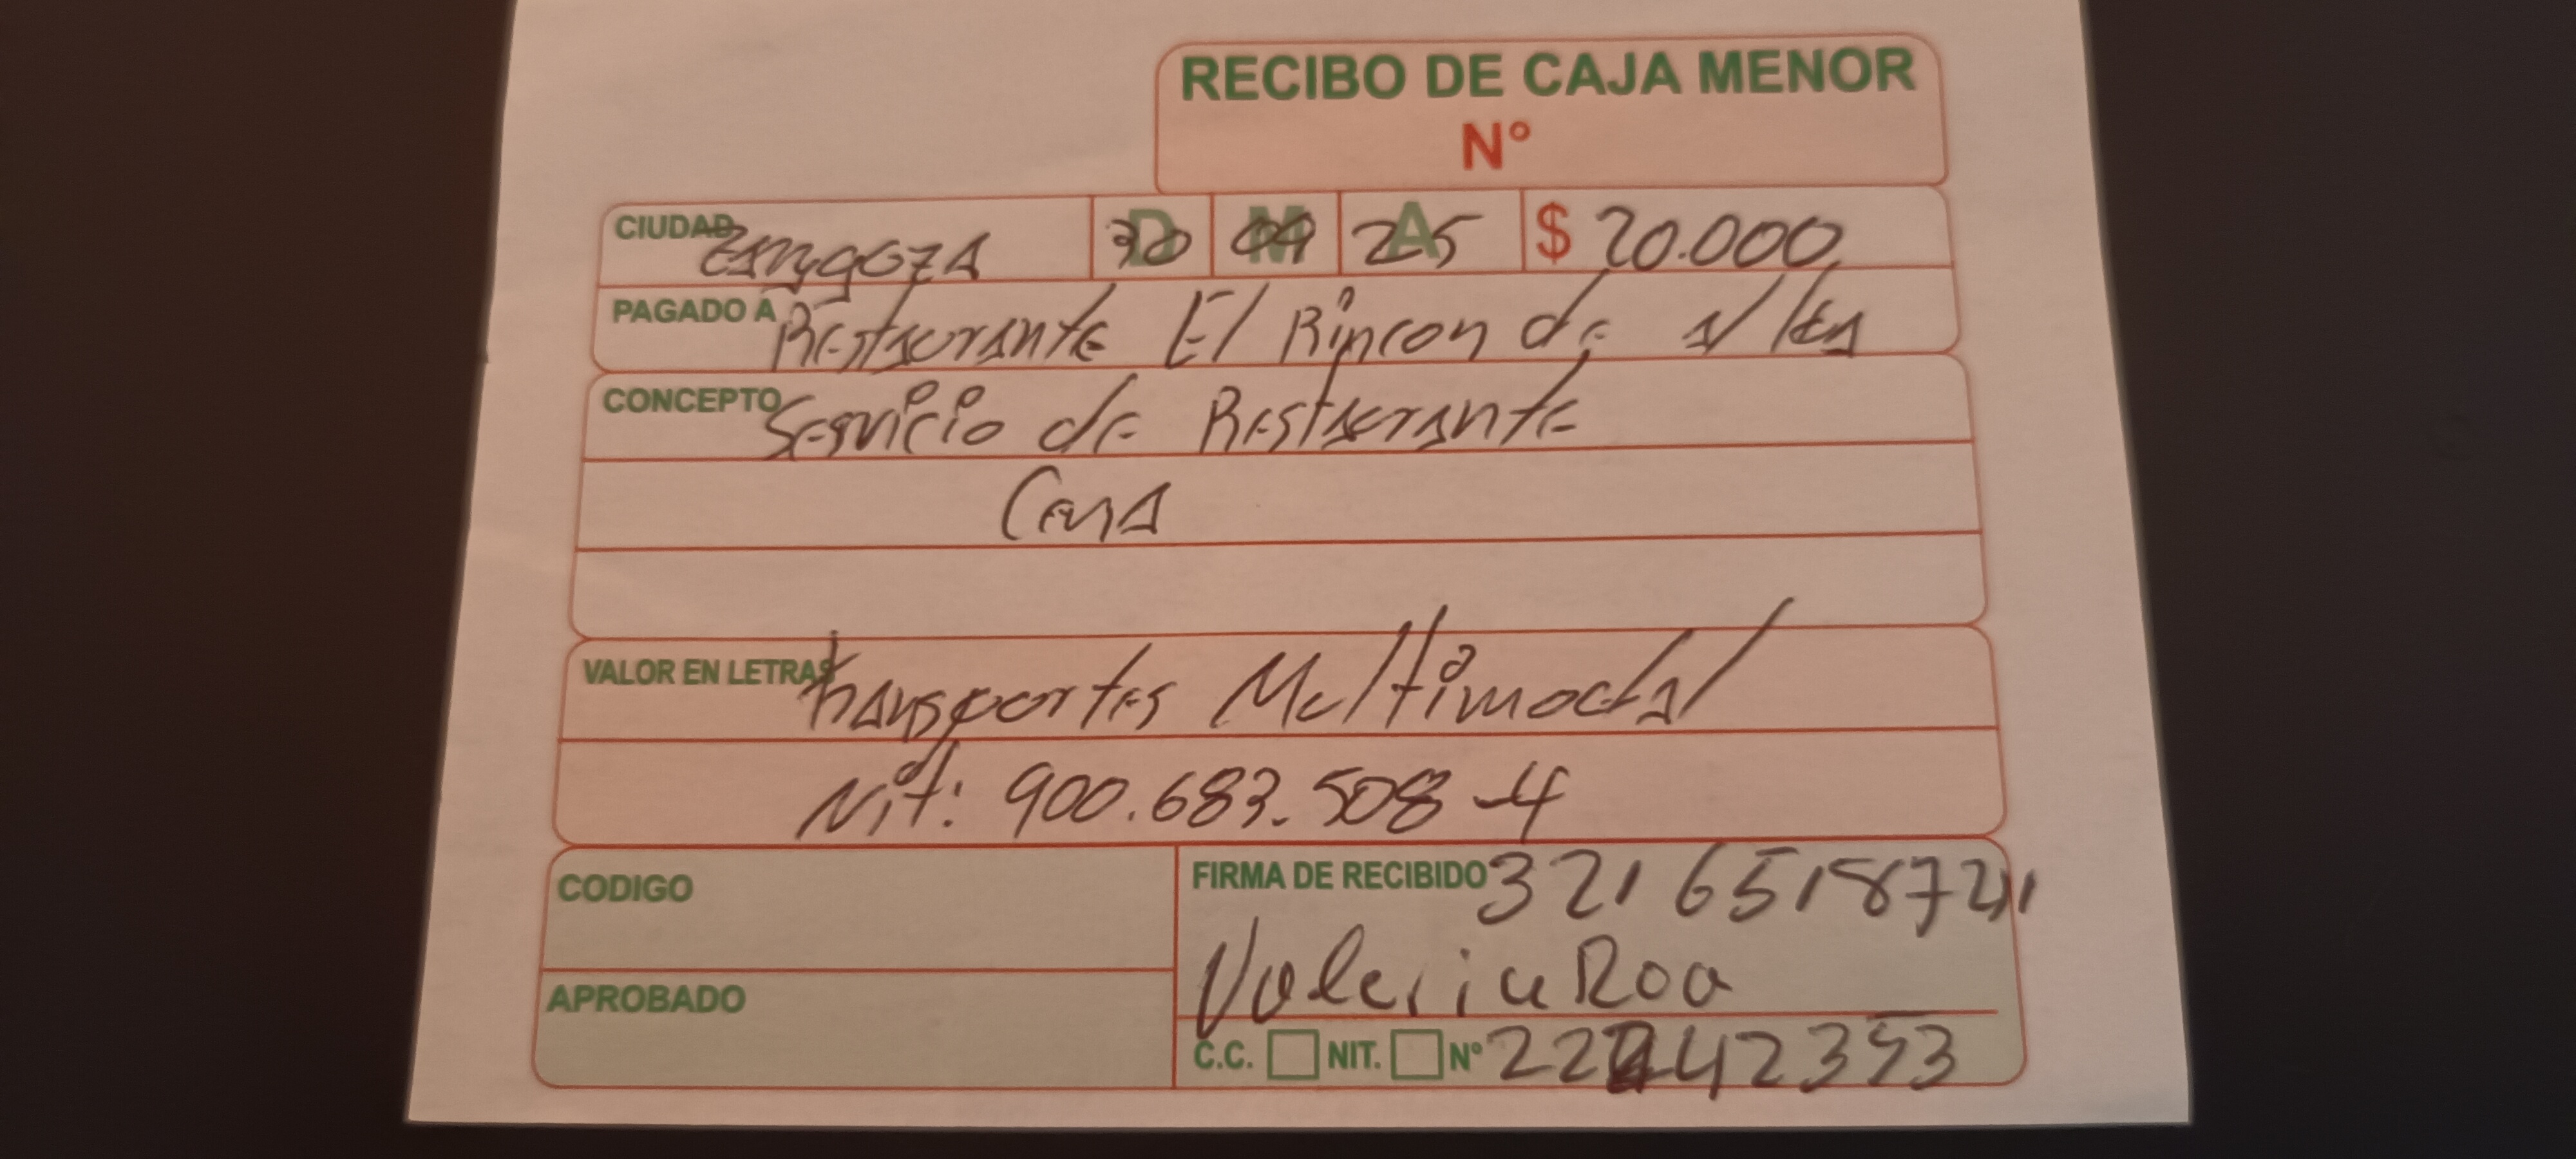 RECIBO DE CAJA MENOR
N°
CIUDAD Zaragoza D 30 M 09 A 25 $ 20.000
PAGADO A Restaurante El Rincon de
CONCEPTO Servicio de Restaurante
Cena
VALOR EN LETRAS Transportes Multimodal
Nit: 900.683.508-4
CODIGO
FIRMA DE RECIBIDO 321 6518721
Valeria Roa
APROBADO
C.C. NIT. N°